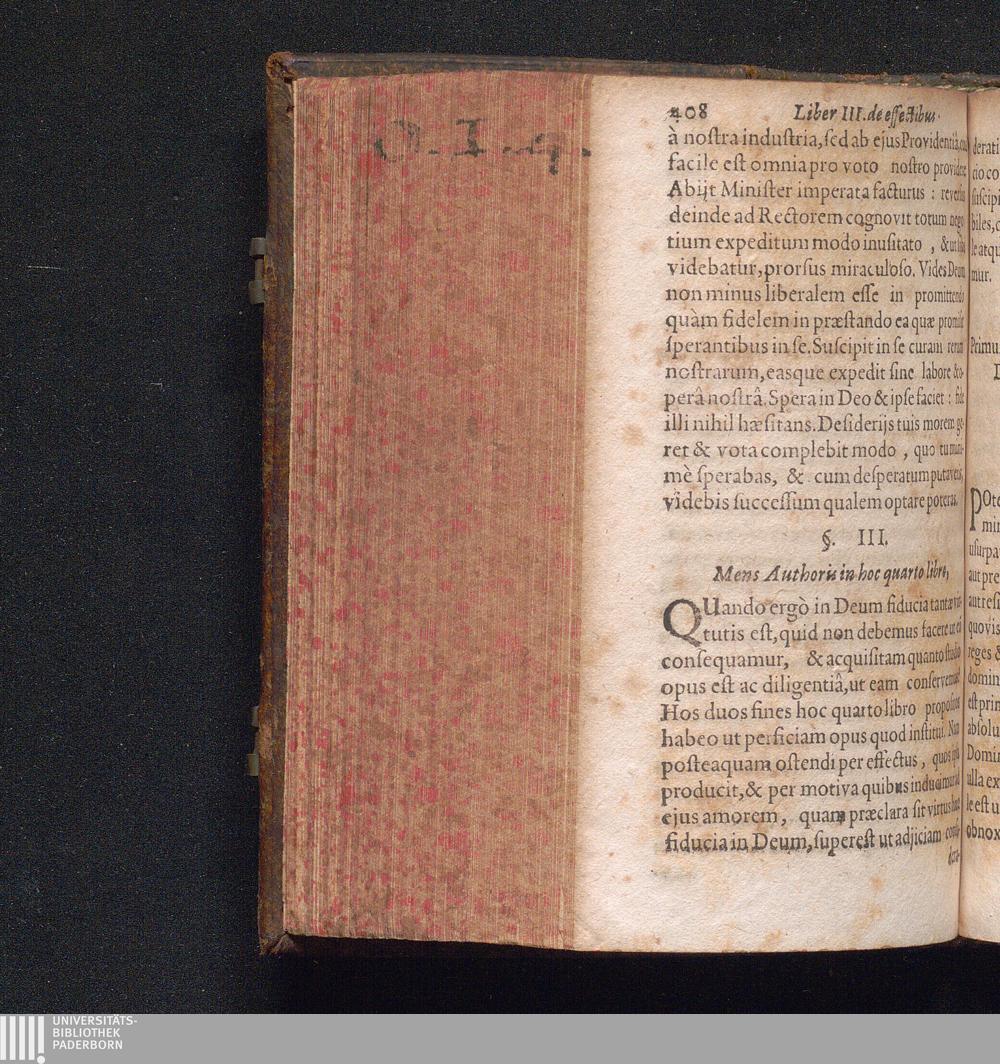 408 Liber III. de effectibus
à nostra industria, sed ab ejus Providentiâ, cui
facile est omnia pro voto nostro providere
Abijt Minister imperata facturus : reversus
deinde ad Rectorem cognovit totum nego
tium expeditum modo inusitato , & ut illi
videbatur, prorsus miraculoso. Vides Deum
non minus liberalem esse in promittendo
quàm fidelem in præstando ea quæ promisit
sperantibus in se. Suscipit in se curam rerum
nostrarum, easque expedit sine labore & o-
perâ nostrâ. Spera in Deo & ipse faciet : fide
illi nihil hæsitans. Desiderijs tuis morem ge-
ret & vota complebit modo , quo tu mini-
mè sperabas, & cum desperatum putaveris,
videbis successum qualem optare poteras.
§. III.
Mens Authoris in hoc quarto libro,
QUando ergò in Deum fiducia tantæ vir-
tutis est, quid non debemus facere ut eã
consequamur, & acquisitam quanto studio
opus est ac diligentiâ, ut eam conservemus?
Hos duos fines hoc quarto libro propositos
habeo ut perficiam opus quod institui. Nam
posteaquam ostendi per effectus , quos ipsa
producit, & per motiva quibus inducimur ad
ejus amorem, quam præclara sit virtus hæc
fiducia in Deum, superest ut adjiciam consi-
dera-
derati
cio co
suscipi
biles, c
le atqu
mur.
Primu
POte
min
usurpa
aut pre
aut resi
quovis
reges &
domin
est prin
absolu
Domin
ulla ex
le est u
obnox
UNIVERSITÄTS-
BIBLIOTHEK
PADERBORN